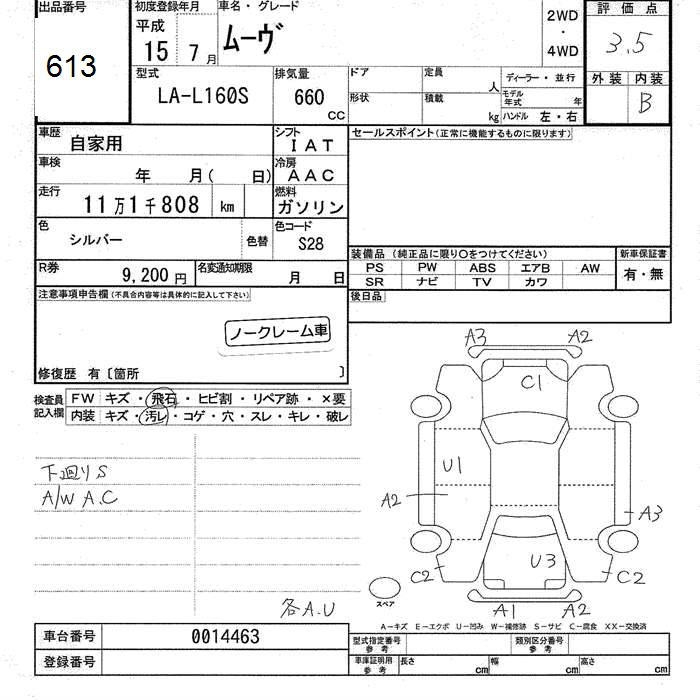 出品番号
613
初度登録年月
平成
15 7月
車名・グレード
ムーヴ
2WD
・
4WD
評価点
3.5
外装 内装
B
型式
LA-L160S
排気量
660
CC
ドア
定員
人
形状
積載
kg
ディーラー・並行
モデル年式
年
ハンドル 左・右
車歴
自家用
シフト
IAT
車検
年 月( 日)
冷房
AAC
走行
11万1千808 km
燃料
ガソリン
色
シルバー
色替
色コード
S28
R券
9,200円
名変通知期限
月 日
セールスポイント(正常に機能するものに限ります)
装備品(純正品に限り○をつけてください)
PS PW ABS エアB AW
SR ナビ TV カワ
新車保証書
有・無
後日品
注意事項申告欄(不具合内容等は具体的に記入して下さい)
ノークレーム車
修復歴 有〔箇所 〕
検査員記入欄
FW キズ・飛石・ヒビ割・リペア跡・×要
内装 キズ・汚レ・コゲ・穴・スレ・キレ・破レ
下廻りS
A/W A.C
各A.U
A3 A2
C1
U1
A2
A3
U3
C2 C2
A1 A2
スペア
A-キズ E-エクボ U-凹み W-補修跡 S-サビ C-腐食 XX-交換済
車台番号 0014463
登録番号
型式指定番号
参考
類別区分番号
参考
車庫証明用
参考
長さ cm 幅 cm 高さ cm